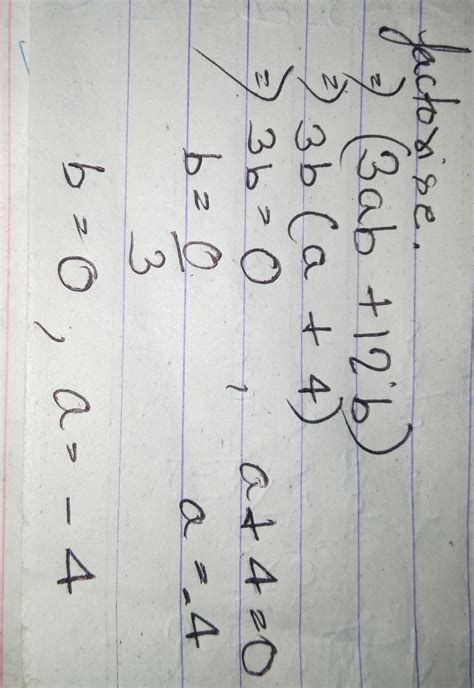 factorise.
⇒ (3ab + 12b)
⇒ 3b (a + 4)
⇒ 3b = 0 , a + 4 = 0
b = 0/3 a = -4
b = 0 , a = -4